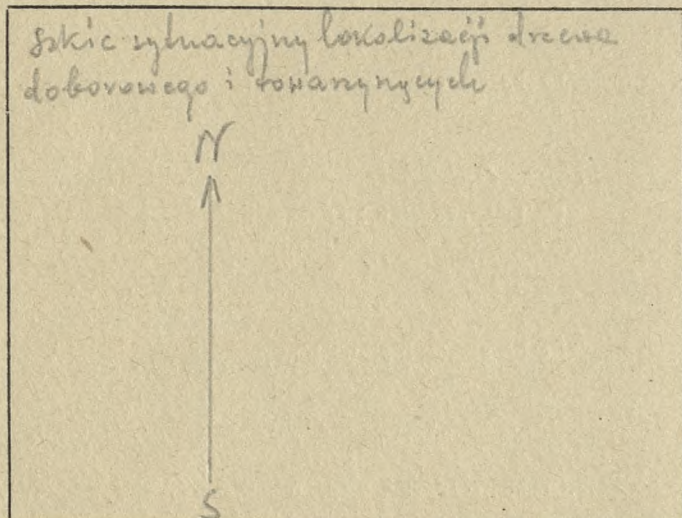 Szkic sytuacyjny lokalizacji drzewa
doborowego i towarzyszących
N
S